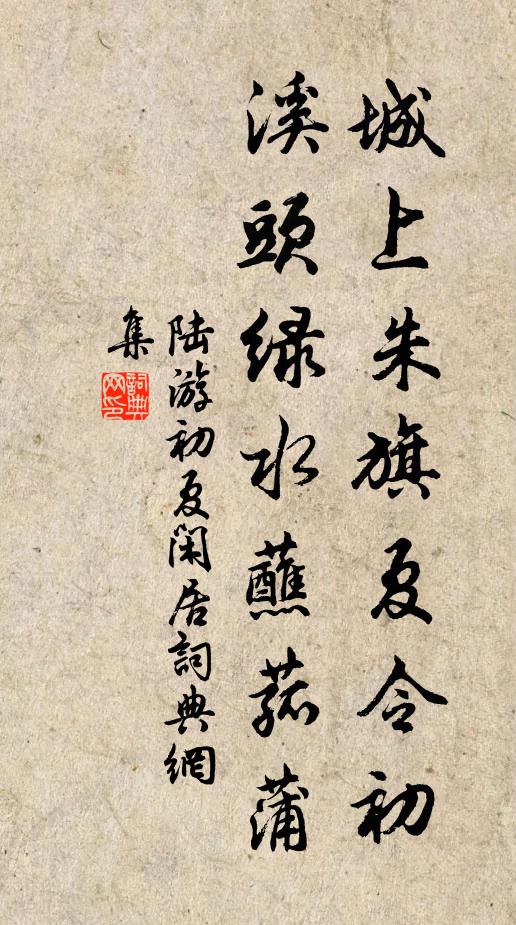 城上朱旗夏令初
溪頭綠水蘸菰蒲
陸游初夏閑居詞典網
集
詞典网印